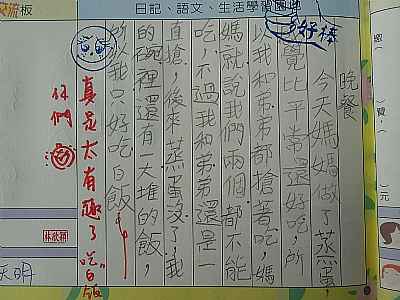 日記、語文、生活學習園地
好棒
晚餐
今天媽媽做了蒸蛋
覺比平常還好吃,所
以我和弟弟都搶著吃,媽
媽就說我們兩個都不能
吃,不過我和弟弟還是一
直搶,後來蒸蛋沒了,我
的碗裡還有一大堆的飯,
所我只好吃白飯
真是太有趣了吃白飯
你們
天明